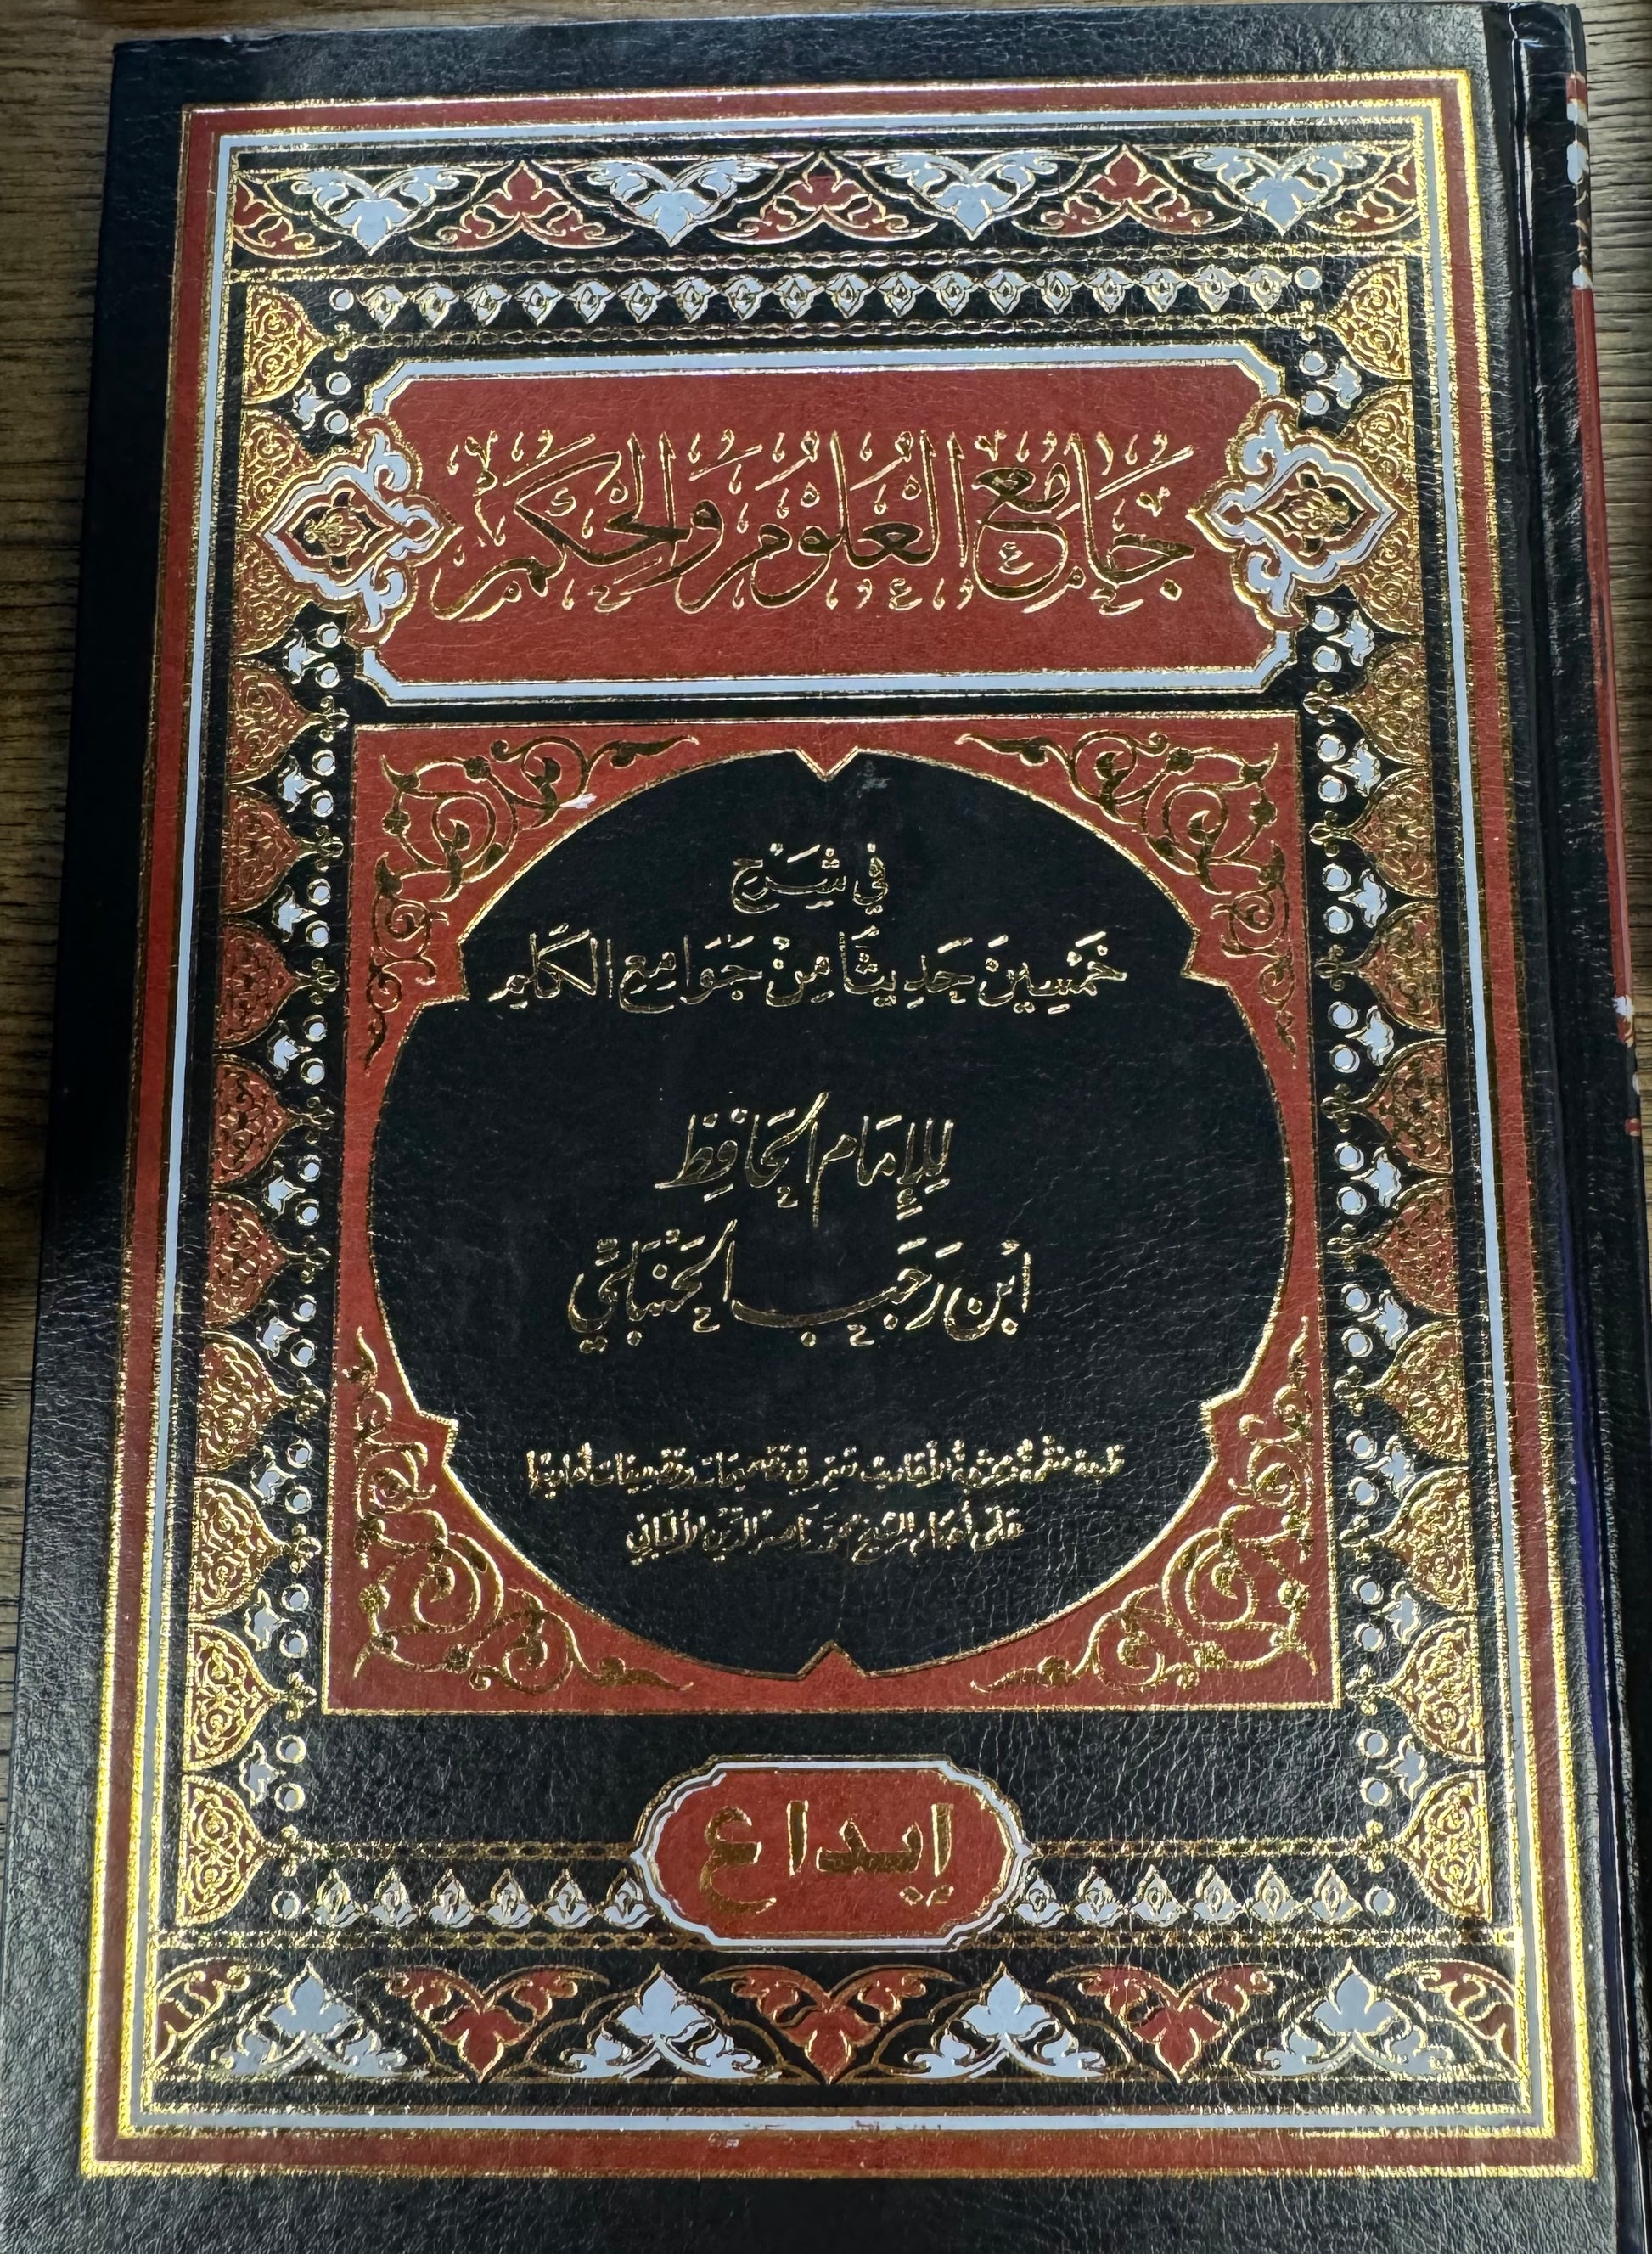 جَامِعُ العُلُومِ وَالحِكَمِ
فِي شَرْحِ
خَمْسِينَ حَدِيثًا مِنْ جَوَامِعِ الكَلِمِ
لِلإِمَامِ الحَافِظِ
ابْنِ رَجَبٍ الحَنْبَلِيِّ
طبعة منقحة ومخرجة الأحاديث تعتمد في تصحيحات وتضعيفات أحاديثها
على أحكام الشيخ محمد ناصر الدين الألباني
إبداع